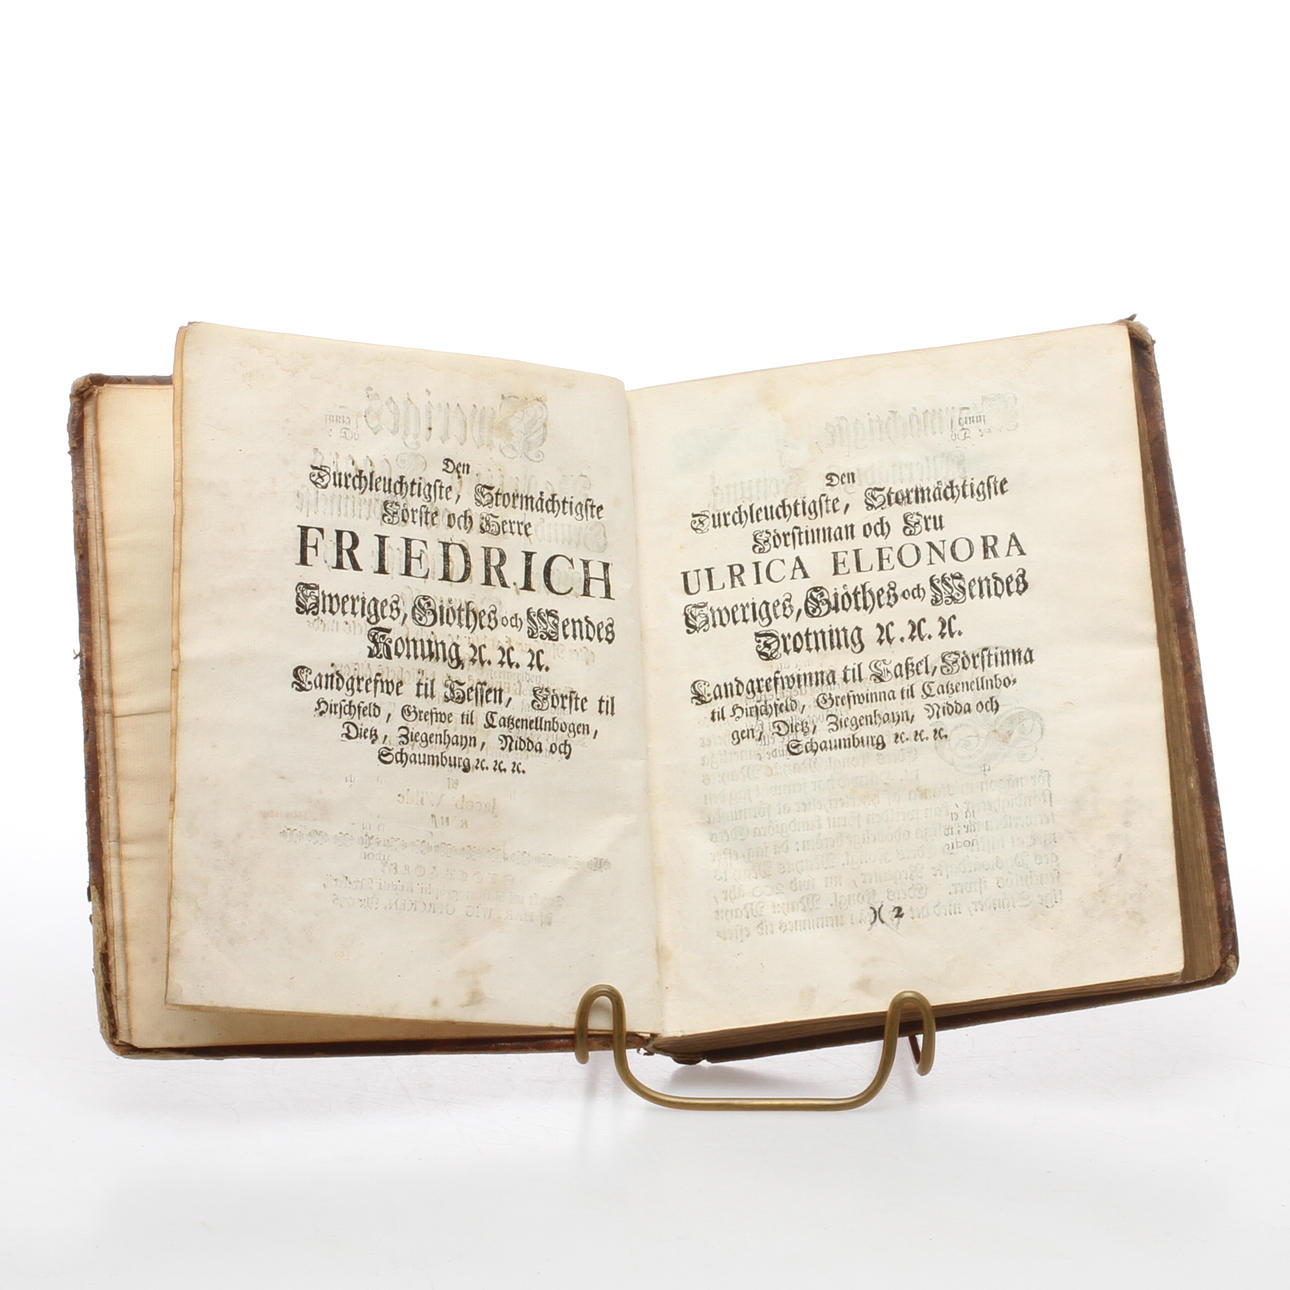 Den
Durchleuchtigste, Stormächtigste
Förste och Herre
FRIEDRICH
Sweriges, Giöthes och Wendes
Konung, ꝛc. ꝛc. ꝛc.
Landgrefwe til Hessen, Förste til
Hirschfeld, Grefwe til Catzenellnbogen,
Dietz, Ziegenhayn, Nidda och
Schaumburg ꝛc. ꝛc. ꝛc.
Den
Durchleuchtigste, Stormächtigste
Förstinnan och Fru
ULRICA ELEONORA
Sweriges, Giöthes och Wendes
Drotning ꝛc. ꝛc. ꝛc.
Landgrefwinna til Caßel, Förstinna
til Hirschfeld, Grefwinna til Catzenellnbo-
gen, Dietz, Ziegenhayn, Nidda och
Schaumburg ꝛc. ꝛc. ꝛc.
)( 2